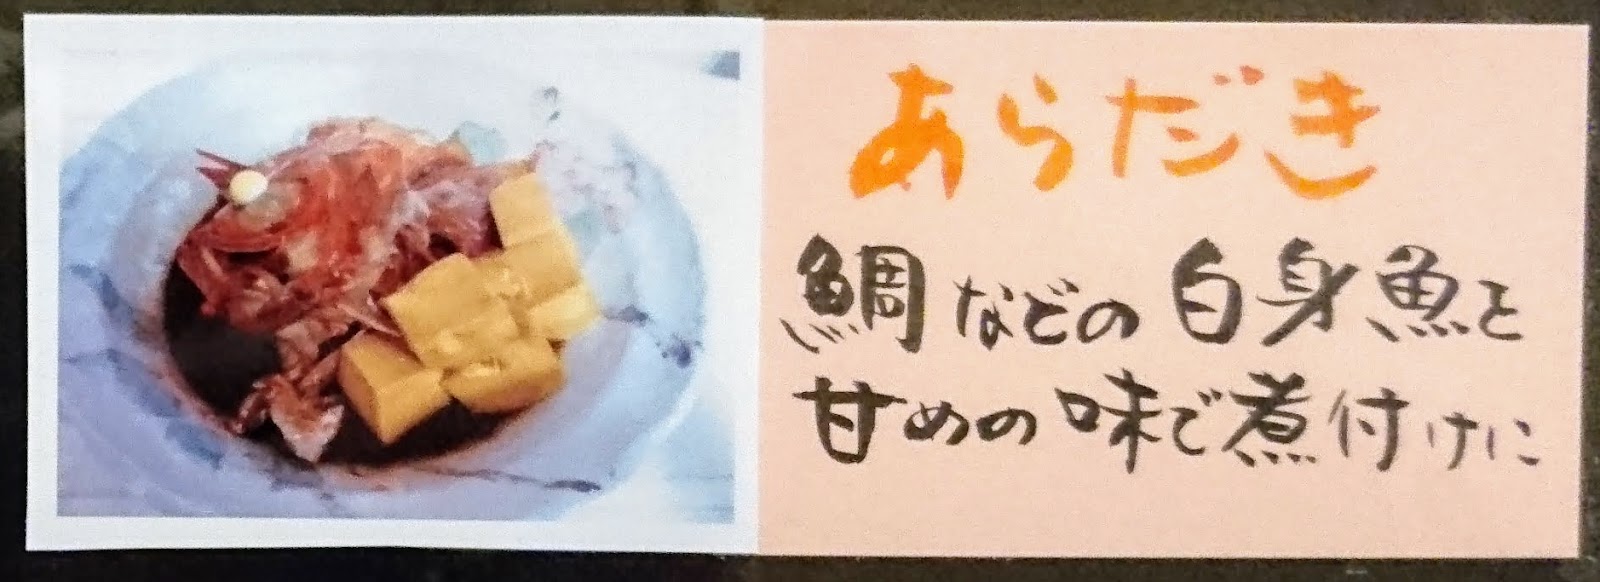 あらだき
鯛などの白身魚を
甘めの味で煮付けに